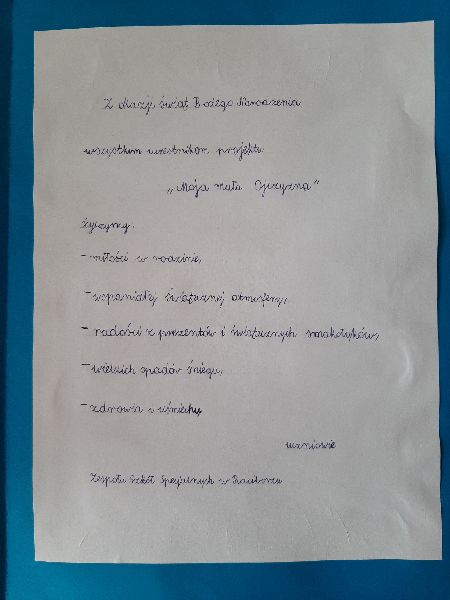 Z okazji świąt Bożego Narodzenia
wszystkim uczestnikom projektu
„Moja mała Ojczyzna"
życzymy:
- miłości w rodzinie,
- wspaniałej świątecznej atmosfery,
- radości z prezentów i świątecznych smakołyków,
- wielkich opadów śniegu,
- zdrowia i uśmiechu
uczniowie
Zespołu Szkół Specjalnych w Raciborzu